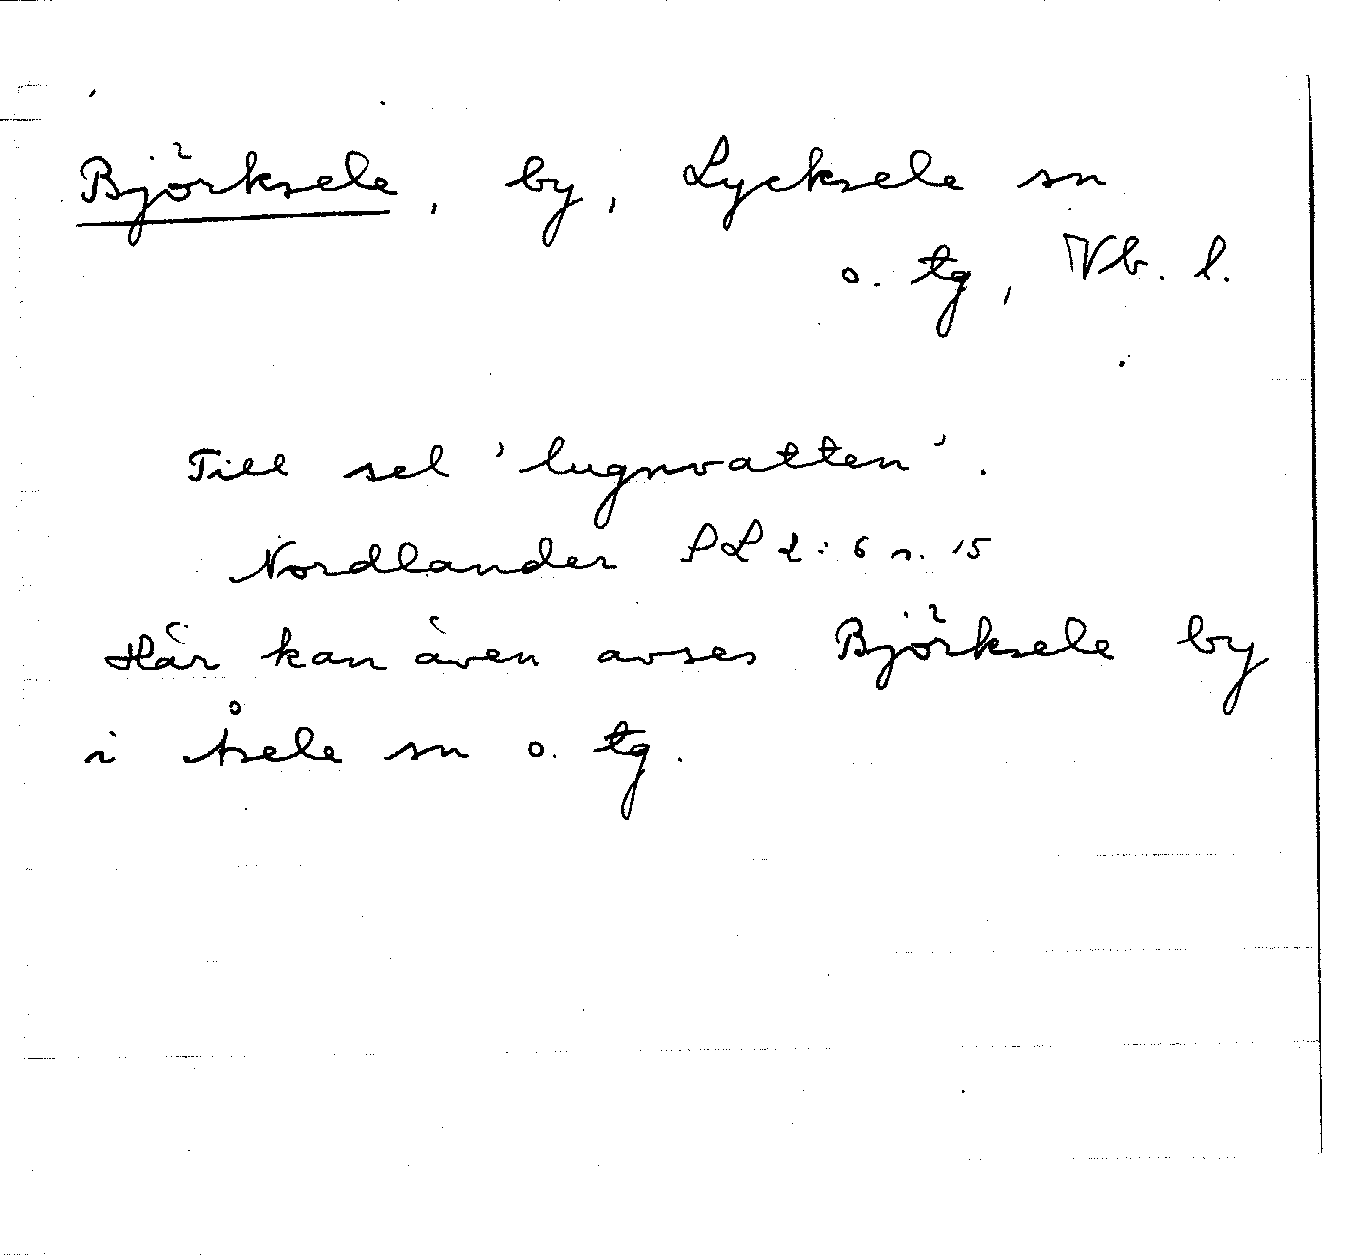 Björksele, by, Lycksele sn
o. tg, Vb. l.
Till sel 'lugnvatten'.
Nordlander SL 2:6 s. 15
Här kan även avses Björksele by
i Åsele sn o. tg.